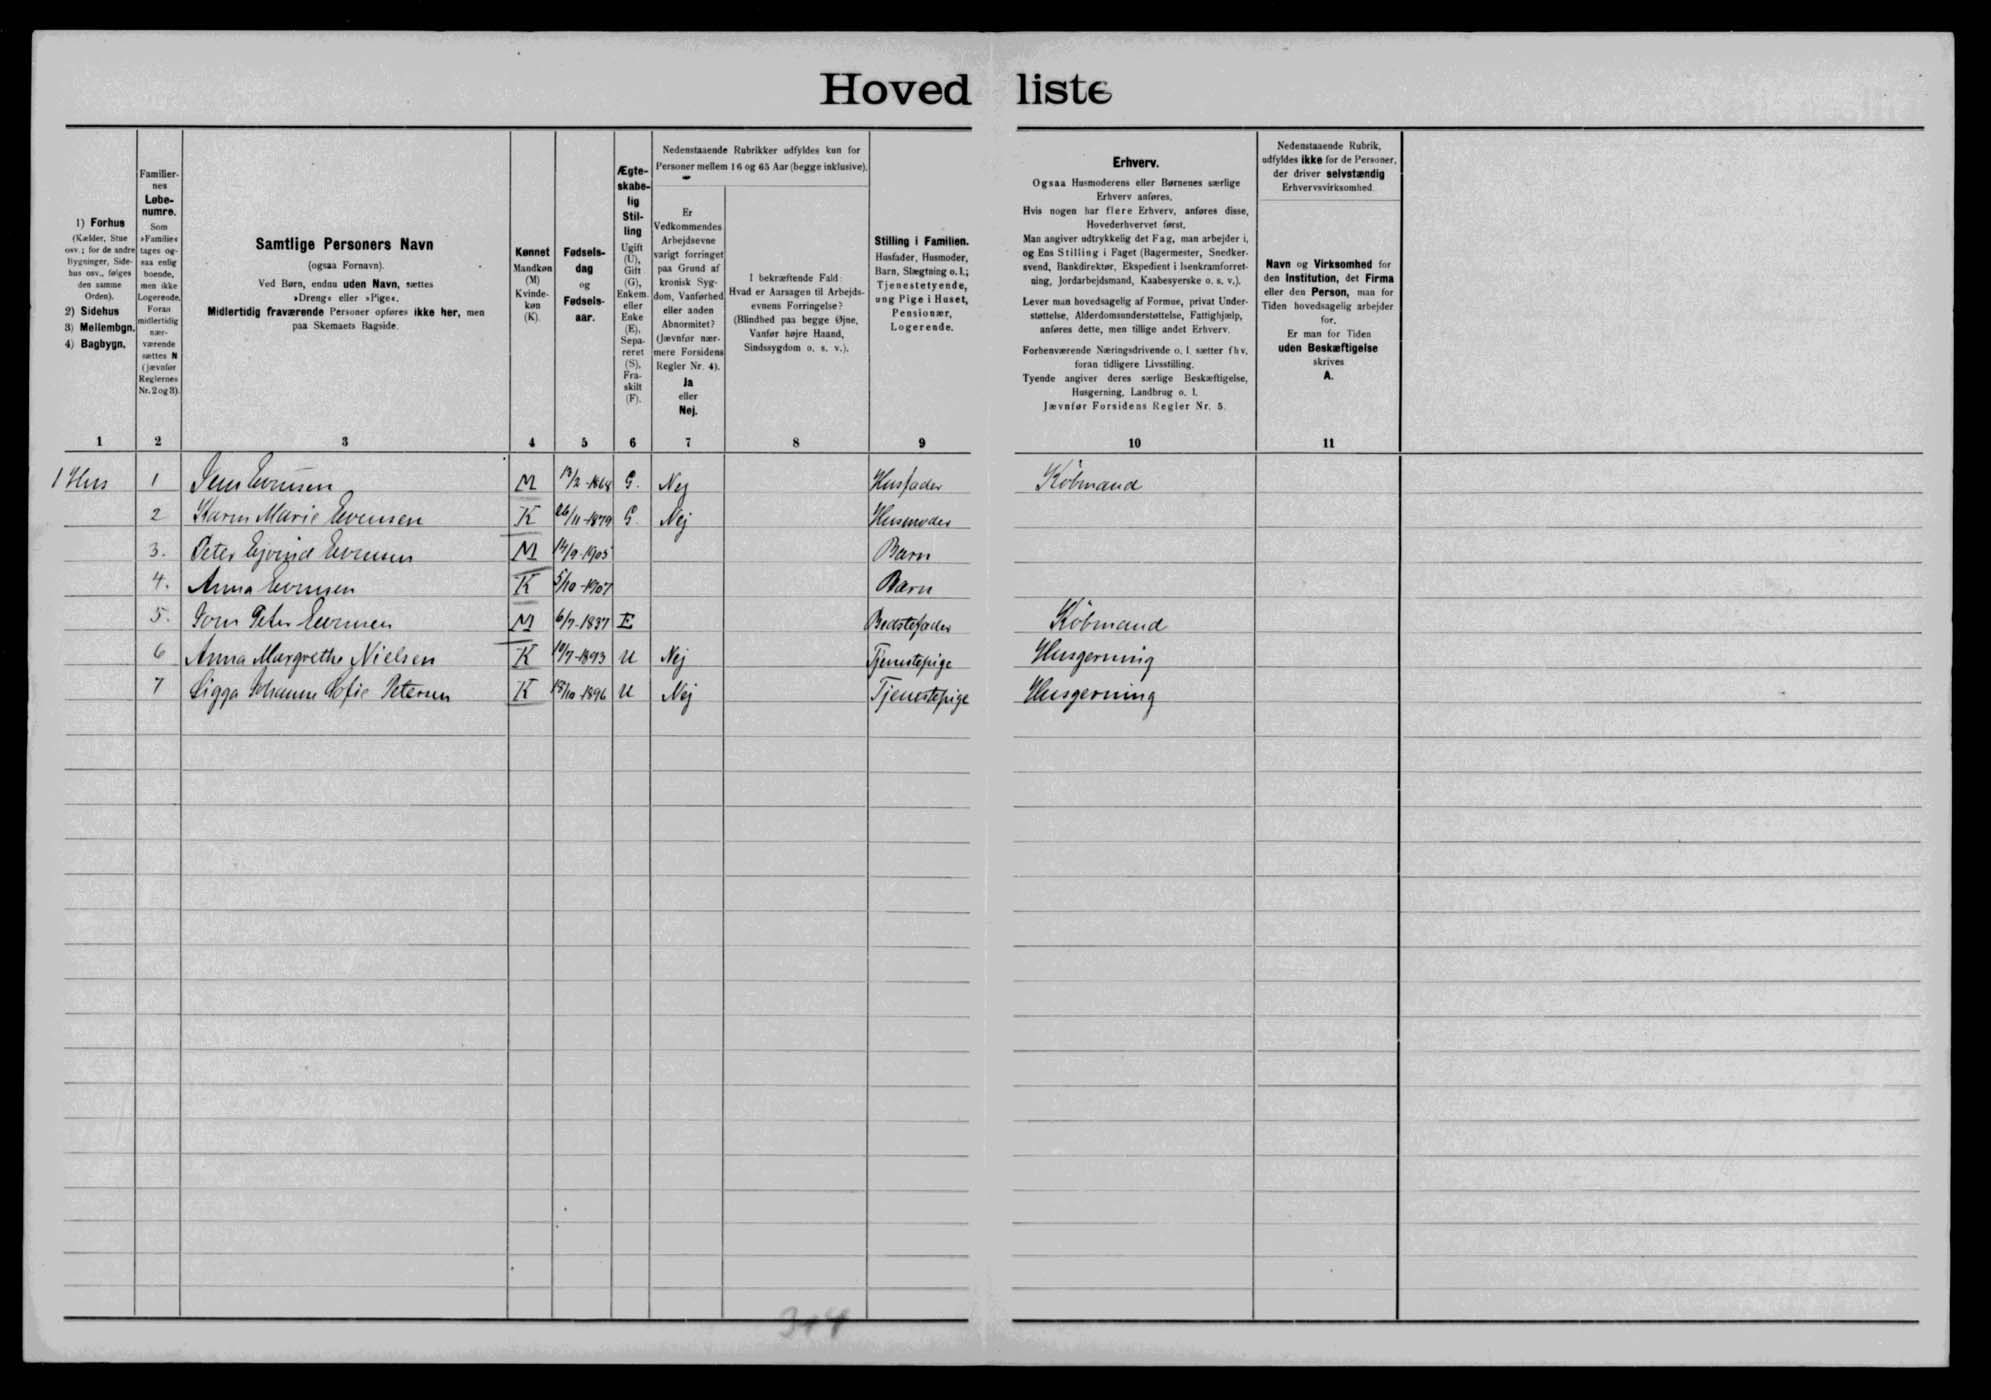 Hovedliste
1) Forhus
(Kælder, Stue
osv.; for de andre
Bygninger, Side-
hus osv., følges
den samme
Orden).
2) Sidehus
3) Mellembgn.
4) Bagbygn.
1
Familier-
nes
Løbe-
numre.
Som
»Familie«
tages og-
saa enlig
boende,
men ikke
Logerende.
Foran
midlertidig
nær-
værende
sættes N
(jævnfør
Reglernes
Nr. 2 og 3).
2
Samtlige Personers Navn
(ogsaa Fornavn).
Ved Børn, endnu uden Navn, sættes
»Dreng« eller »Pige«.
Midlertidig fraværende Personer opføres ikke her, men
paa Skemaets Bagside.
3
Kønnet
Mandkøn
(M)
Kvinde-
køn
(K).
4
Fødsels-
dag
og
Fødsels-
aar.
5
Ægte-
skabe-
lig
Stil-
ling
Ugift
(U),
Gift
(G),
Enkem.
eller
Enke
(E),
Sepa-
reret
(S),
Fra-
skilt
(F).
6
Nedenstaaende Rubrikker udfyldes kun for
Personer mellem 16 og 65 Aar (begge inklusive).
Er
Vedkommendes
Arbejdsevne
varigt forringet
paa Grund af
kronisk Syg-
dom, Vanførhed
eller anden
Abnormitet?
(Jævnfør nær-
mere Forsidens
Regler Nr. 4).
Ja
eller
Nej.
7
I bekræftende Fald:
Hvad er Aarsagen til Arbejds-
evnens Forringelse?
(Blindhed paa begge Øjne,
Vanfør højre Haand,
Sindssygdom o. s. v.).
8
Stilling i Familien.
Husfader, Husmoder,
Barn, Slægtning o. l.;
Tjenestetyende,
ung Pige i Huset,
Pensionær,
Logerende.
9
Erhverv.
Ogsaa Husmoderens eller Børnenes særlige
Erhverv anføres.
Hvis nogen har flere Erhverv, anføres disse,
Hovederhvervet først.
Man angiver udtrykkelig det Fag, man arbejder i,
og Ens Stilling i Faget (Bagermester, Snedker-
svend, Bankdirektør, Ekspedient i Isenkramforret-
ning, Jordarbejdsmand, Kaabesyerske o. s. v.).
Lever man hovedsagelig af Formue, privat Under-
støttelse, Alderdomsunderstøttelse, Fattighjælp,
anføres dette, men tillige andet Erhverv.
Forhenværende Næringsdrivende o. l. sætter fhv.
foran tidligere Livsstilling.
Tyende angiver deres særlige Beskæftigelse,
Husgerning, Landbrug o. l.
Jævnfør Forsidens Regler Nr. 5.
10
Nedenstaaende Rubrik,
udfyldes ikke for de Personer,
der driver selvstændig
Erhvervsvirksomhed.
Navn og Virksomhed for
den Institution, det Firma
eller den Person, man for
Tiden hovedsagelig arbejder
for.
Er man for Tiden
uden Beskæftigelse
skrives
A.
11
1 Hus 1 Jens Evensen M 13/2-1868 G. Nej Husfader Købmand
2 Karen Marie Evensen K 26/11-1879 G. Nej Husmoder
3. Peter Ejvind Evensen M 14/9-1905 Barn
4. Anna Evensen K 5/10-1907 Barn
5. Peter Evensen M 6/7-1837 E Bedstefader Købmand
6 Anna Margrethe Nielsen K 19/7-1893 U Nej Tjenestepige Husgerning
7 Sigga Johanne Sofie Petersen K 18/10-1896 U Nej Tjenestepige Husgerning